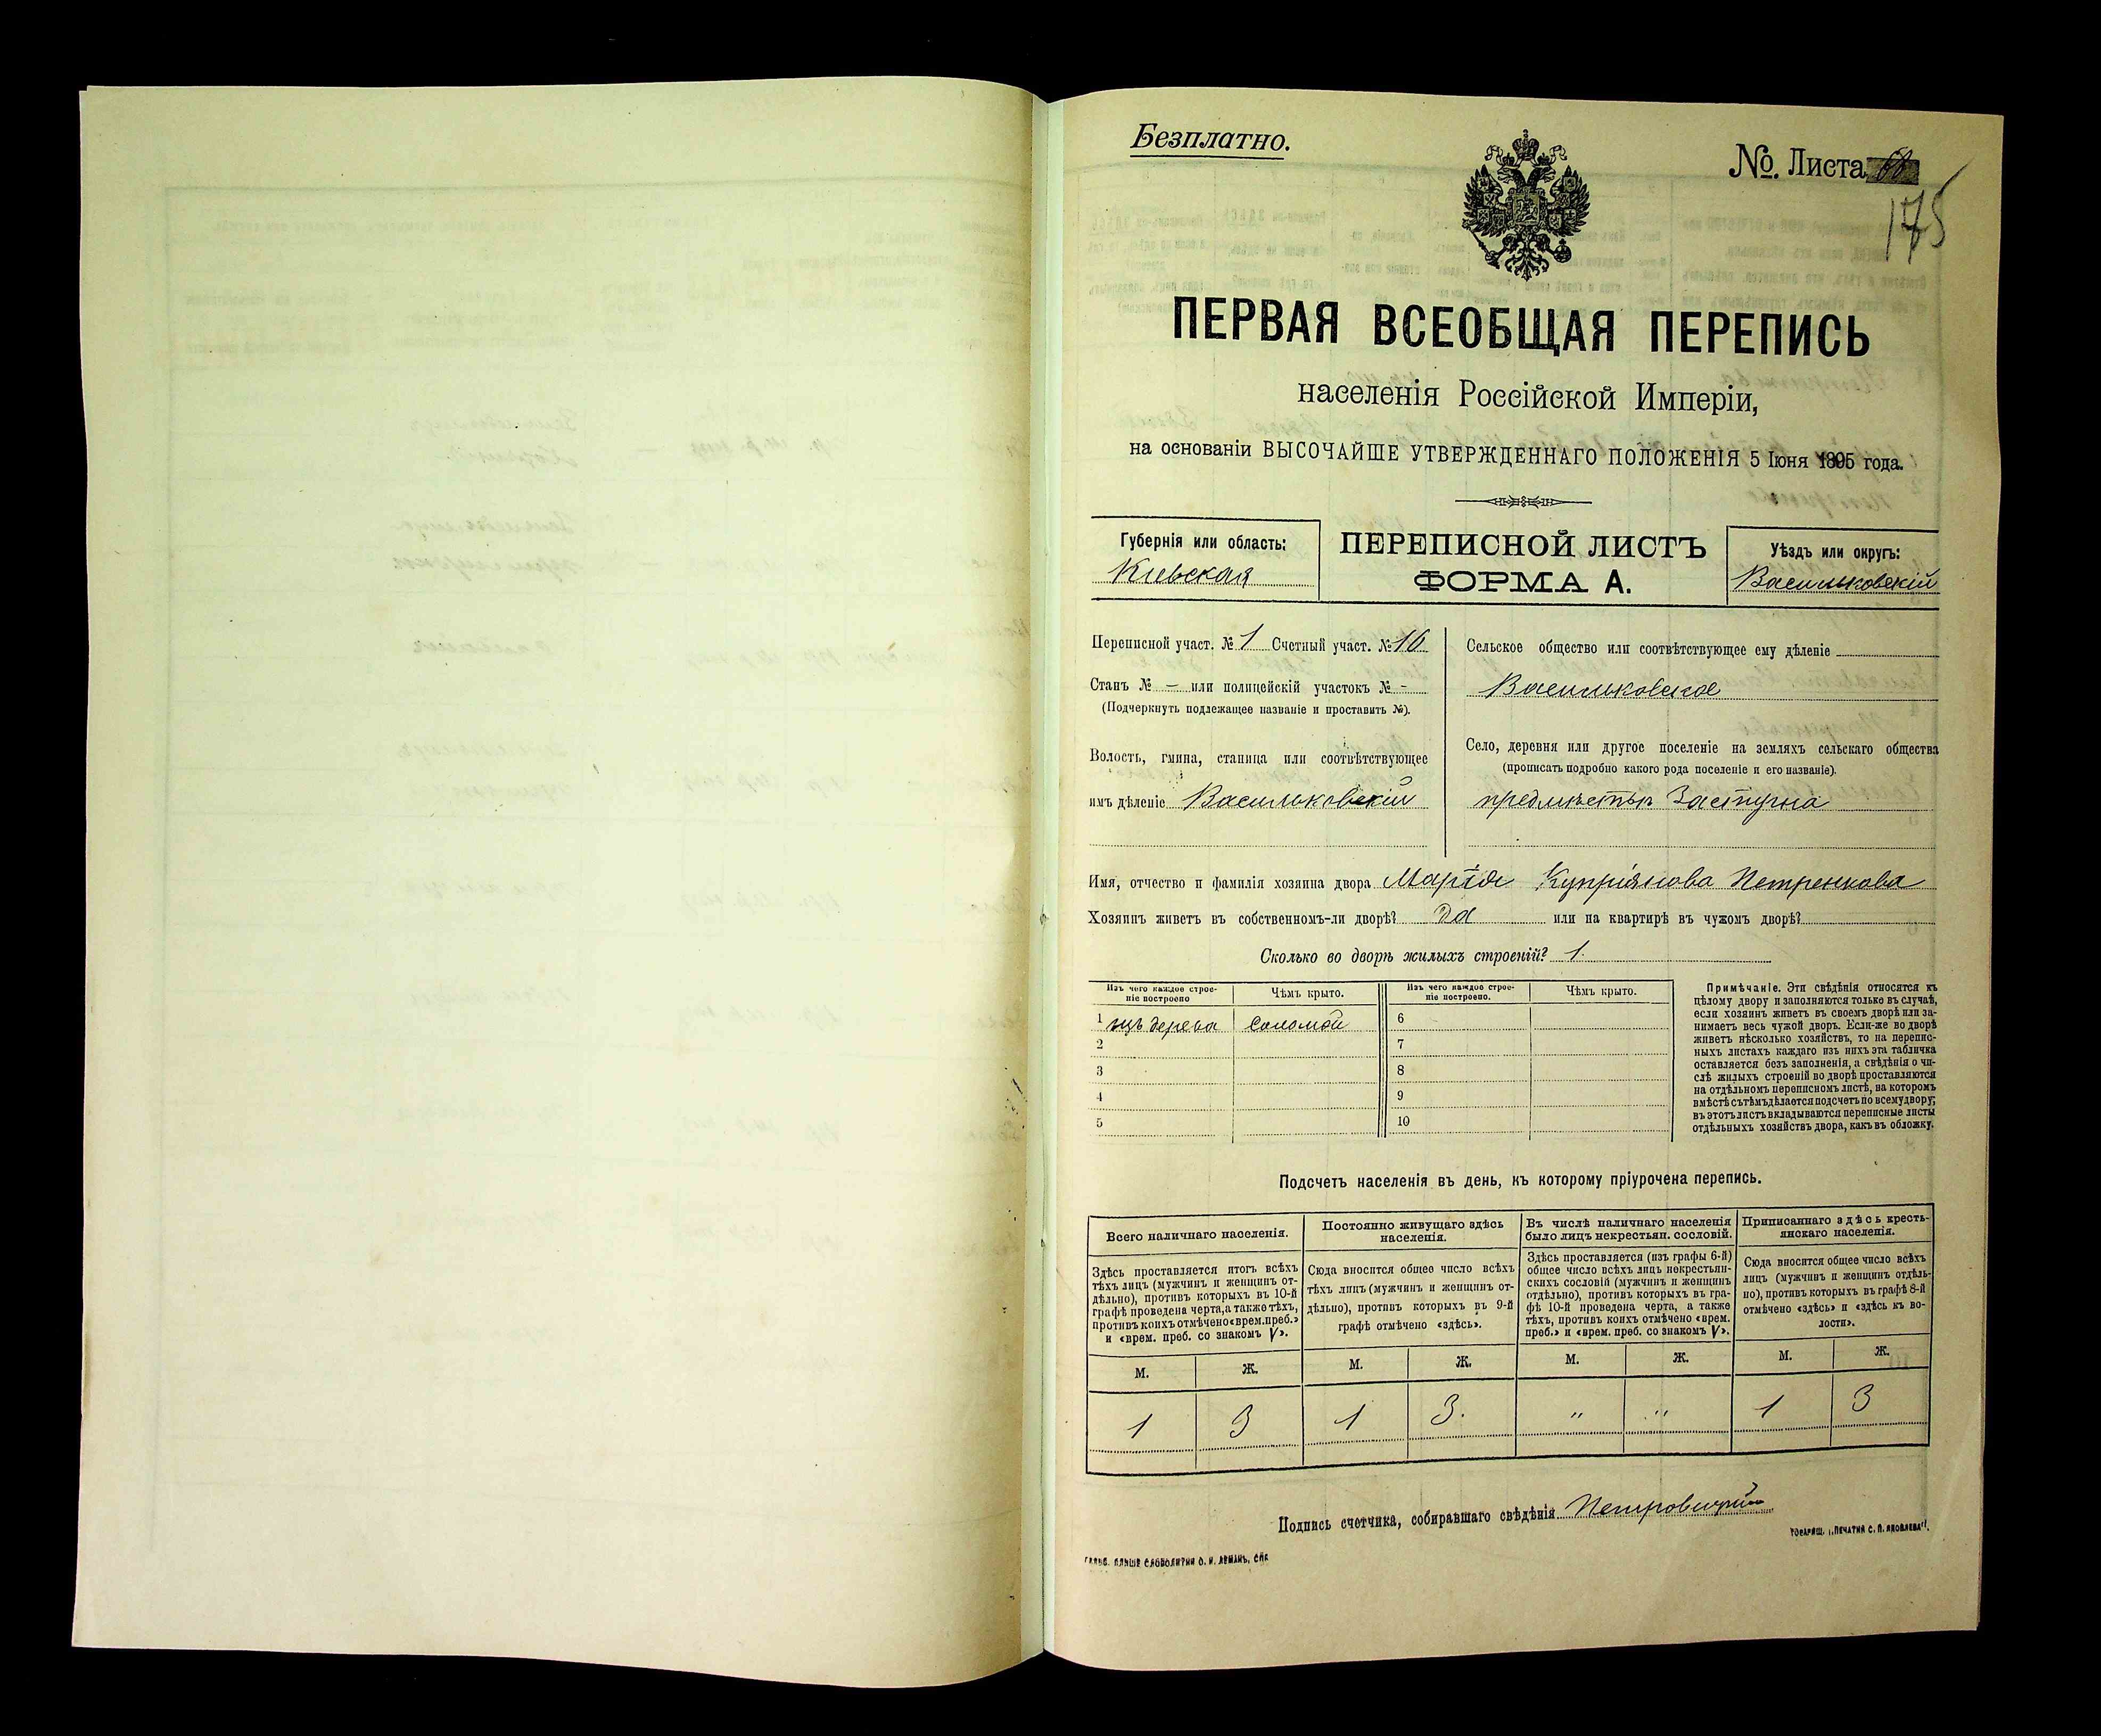 Безплатно.
№. Листа 68
175
ПЕРВАЯ ВСЕОБЩАЯ ПЕРЕПИСЬ
населенія Россійской Имперіи,
на основаніи ВЫСОЧАЙШЕ УТВЕРЖДЕННАГО ПОЛОЖЕНІЯ 5 Іюня 1895 года.
Губернія или область:
Кіевская
ПЕРЕПИСНОЙ ЛИСТЪ
ФОРМА А.
Уѣздъ или округъ:
Васильковскій
Переписной участ. № 1 Счетный участ. № 16
Станъ № — или полицейскій участокъ № -
(Подчеркнуть подлежащее названіе и проставить №).
Волость, гмина, станица или соотвѣтствующее
имъ дѣленіе Васильковскій
Сельское общество или соотвѣтствующее ему дѣленіе
Васильковское
Село, деревня или другое поселеніе на земляхъ сельскаго общества
(прописать подробно какого рода поселеніе и его названіе).
предмѣстье Застугна
Имя, отчество и фамилія хозяина двора Марія Купріянова Петренкова
Хозяинъ живетъ въ собственномъ-ли дворѣ? Да или на квартирѣ въ чужомъ дворѣ?
Сколько во дворѣ жилыхъ строеній? 1.
Изъ чего каждое строе-
ніе построено
Чѣмъ крыто.
Изъ чего каждое строе-
ніе построено.
Чѣмъ крыто.
1 изъ дерева соломой 6
2 7
3 8
4 9
5 10
Примѣчаніе. Эти свѣдѣнія относятся къ
цѣлому двору и заполняются только въ случаѣ,
если хозяинъ живетъ въ своемъ дворѣ или за-
нимаетъ весь чужой дворъ. Если-же во дворѣ
живетъ нѣсколько хозяйствъ, то на перепис-
ныхъ листахъ каждаго изъ нихъ эта табличка
оставляется безъ заполненія, а свѣдѣнія о чи-
слѣ жилыхъ строеній во дворѣ проставляются
на отдѣльномъ переписномъ листѣ, на которомъ
вмѣстѣ съ тѣмъ дѣлается подсчетъ по всему двору;
въ этотъ листъ вкладываются переписные листы
отдѣльныхъ хозяйствъ двора, какъ въ обложку.
Подсчетъ населенія въ день, къ которому пріурочена перепись.
Всего наличнаго населенія.
Здѣсь проставляется итогъ всѣхъ
тѣхъ лицъ (мужчинъ и женщинъ от-
дѣльно), противъ которыхъ въ 10-й
графѣ проведена черта, а также тѣхъ,
противъ коихъ отмѣчено «врем. преб.»
и «врем. преб. со знакомъ V».
Постоянно живущаго здѣсь
населенія.
Сюда вносится общее число всѣхъ
тѣхъ лицъ (мужчинъ и женщинъ от-
дѣльно), противъ которыхъ въ 9-й
графѣ отмѣчено «здѣсь».
Въ числѣ наличнаго населенія
было лицъ некрестьян. сословій.
Здѣсь проставляется (изъ графы 6-й)
общее число всѣхъ лицъ некрестьян-
скихъ сословій (мужчинъ и женщинъ
отдѣльно), противъ которыхъ въ гра-
фѣ 10-й проведена черта, а также
тѣхъ, противъ коихъ отмѣчено «врем.
преб.» и «врем. преб. со знакомъ V».
Приписаннаго здѣсь кресть-
янскаго населенія.
Сюда вносится общее число всѣхъ
лицъ (мужчинъ и женщинъ отдѣль-
но), противъ которыхъ въ графѣ 8-й
отмѣчено «здѣсь» и «здѣсь къ во-
лости».
М. Ж. М. Ж. М. Ж. М. Ж.
1 3 1 3. " " 1 3
Подпись счетчика, собиравшаго свѣдѣнія Петровицкій
ТОВАРИЩ. „ПЕЧАТНЯ С. П. ЯКОВЛЕВА“.
СЛОВОЛИТНИ О. И. ЛЕМАНЪ, СПБ